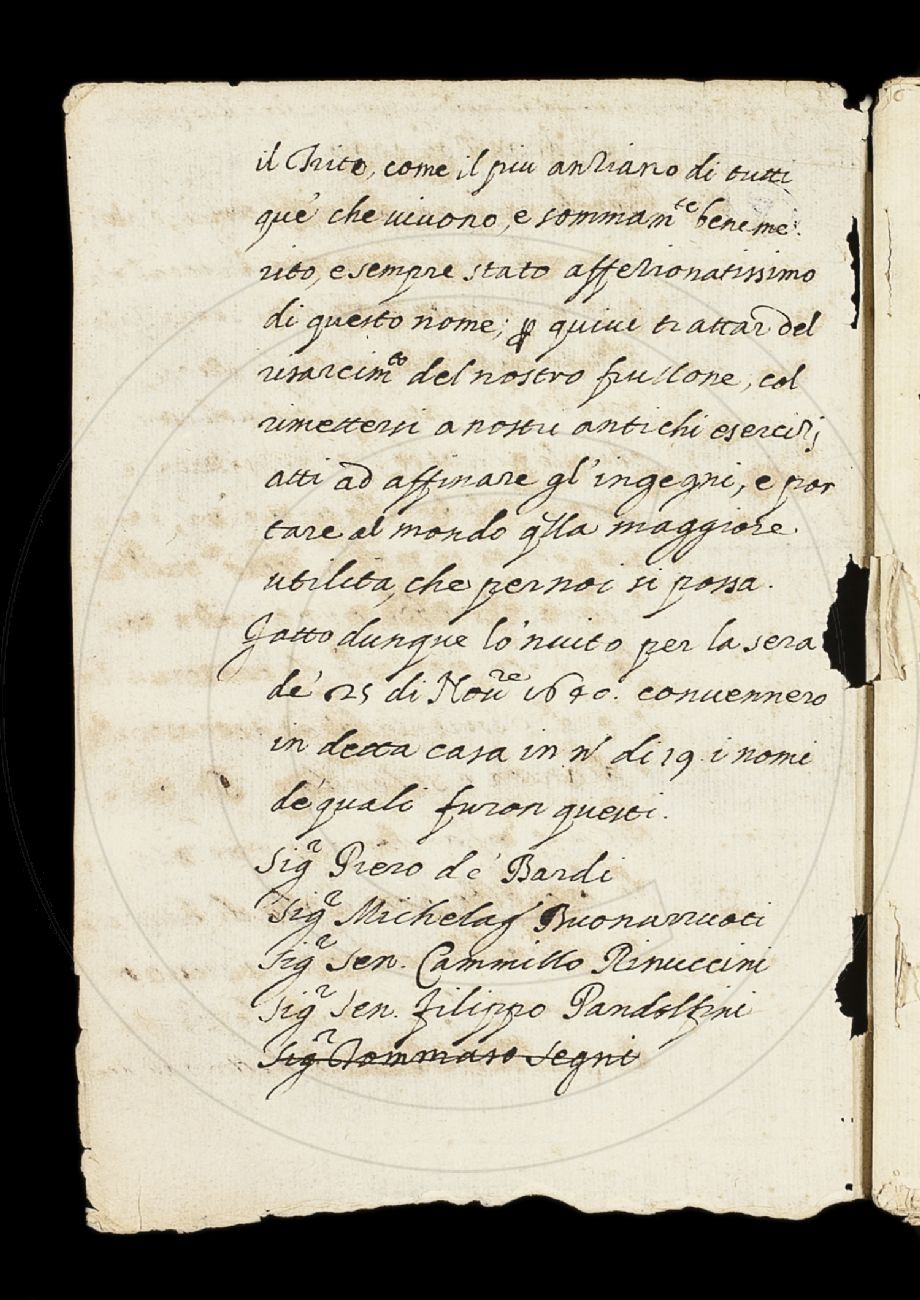 il Trito, come il piu anziano di tutti
que' che uiuono, e sommam.te beneme:
rito, e sempre stato affezionatissimo
di questo nome; ꝑ quiui trattar del
risarcim.to del nostro frullone, col
rimettersi a nostri antichi esercizij
atti ad affinare gl'ingegni, e por
tare al mondo qlla maggiore
utilita, che per noi si possa.
Fatto dunque lo 'nuito per la sera
de' 25 di Nou.re 1640. conuennero
in detta casa in n.o di 19. i nomi
de' quali furon questi.
Sig.r Piero de' Bardi
Sig.r Michelag.o Buonarruoti
Sig.r Sen. Cammillo Rinuccini
Sig.r Sen. Filippo Pandolfini
Sig.r Tommaso Segni